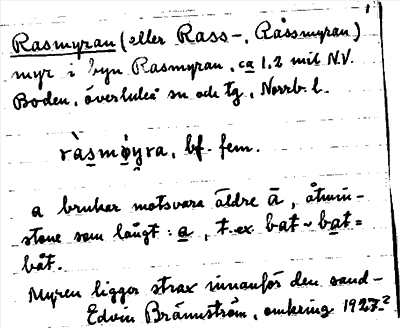 Rasmyran (eller Rass-, Råssmyran)
myr i byn Rasmyran, ca 1,2 mil N.V.
Boden, Överluleå sn och tg, Norrb. l.
ràsmɷ̀yra, bf. fem.
a brukar motsvara äldre ā, åtmin-
stone som långt: a, t. ex. bat ~ bat =
båt.
Myren ligger strax innanför den sand-
Edvin Brännström, omkring 1927-?